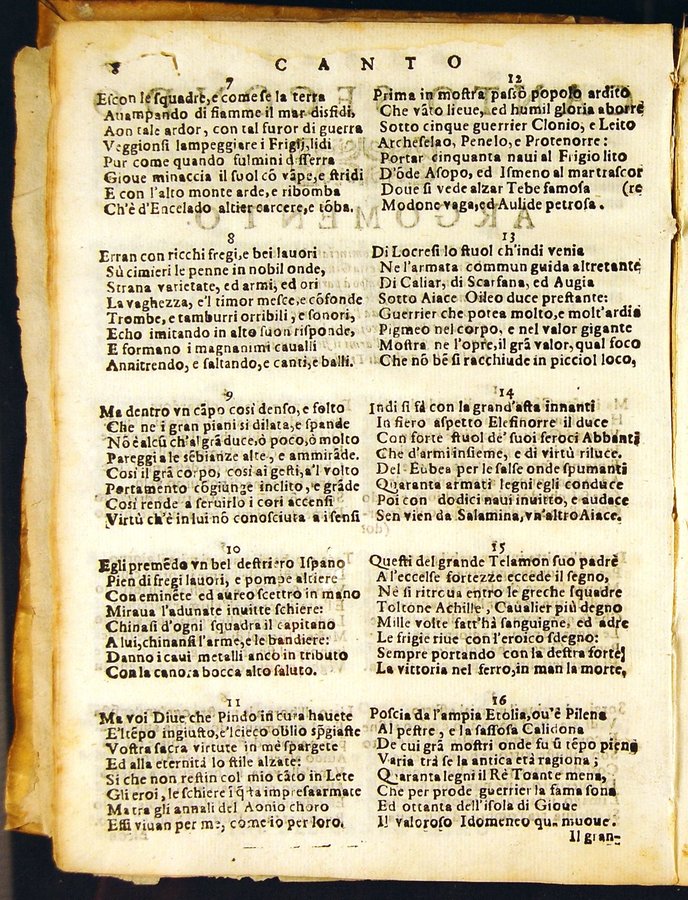 8 CANTO
7
Escon le squadre, e come se la terra
Auampando di fiamme il mar disfidi,
Aon tale ardor, con tal furor di guerra
Veggionsi lampeggiare i Frigij lidi
Pur come quando fulmini disserra
Gioue minaccia il suol cō vāpe, e stridi
E con l'alto monte arde, e ribomba
Ch'è d'Encelado altier carcere, e tōba.
8
Erran con ricchi fregi, e bei lauori
Sù cimieri le penne in nobil onde,
Strana varietate, ed armi, ed ori
La vaghezza, e'l timor mesce, e cōfonde
Trombe, e tamburri orribili, e sonori,
Echo imitando in alto suon risponde,
E formano i magnanimi caualli
Annitrendo, e saltando, e canti, e balli.
9
Ma dentro vn cāpo così denso, e folto
Che ne i gran piani si dilata, e spande
Nō è alcū ch'al grā duce, ò poco, ò molto
Pareggi a le sēbianze alte, e ammirāde.
Così il grā corpo, così ai gesti, a'l volto
Portamento cōgiunge inclito, e grāde
Così rende a seruirlo i cori accensi
Virtù ch'è in lui nō conosciuta a i sensi
10
Egli premēdo vn bel destriero Ispano
Pien di fregi lauori, e pompe altiere
Con eminēte ed aureo scettro in mano
Miraua l'adunate inuitte schiere:
Chinasi d'ogni squadra il capitano
A lui, chinansi l'arme, e le bandiere:
Danno i caui metalli anco in tributo
Con la canora bocca alto saluto.
11
Ma voi Diue che Pindo in cura hauete
E'l tēpo ingiusto, e'l cieco oblio spr̄giaste
Vostra sacra virtute in me spargete
Ed alla eternità lo stile alzate:
Si che non restin col mio cāto in Lete
Gli eroi, le schiere ī q̄sta impresa armate
Ma tra gli annali del Aonio choro
Essi viuan per me, come io per loro.
12
Prima in mostra passò popolo ardito
Che vāto lieue, ed humil gloria aborre
Sotto cinque guerrier Clonio, e Leito
Archeselao, Penelo, e Protenorre:
Portar cinquanta naui al Frigio lito
D'ōde Asopo, ed Ismeno al mar trascor
Doue si vede alzar Tebe famosa (re
Modone vaga, ed Aulide petrosa.
13
Di Locresi lo stuol ch'indi venia
Ne l'armata cōmun guida altretante
Di Caliar, di Scarfana, ed Augia
Sotto Aiace Oileo duce prestante:
Guerrier che potea molto, e molt'ardia
Pigmeo nel corpo, e nel valor gigante
Mostra ne l'opre, il grā valor, qual foco
Che nō bē si racchiude in picciol loco,
14
Indi si fà con la grand'asta innanti
In fiero aspetto Elefinorre il duce
Con forte stuol de' suoi feroci Abbanti
Che d'armi insieme, e di virtù riluce.
Del Eubea per le salse onde spumanti
Quaranta armati legni egli conduce
Poi con dodici naui inuitto, e audace
Sen vien da Salamina, vn'altro Aiace.
15
Questi del grande Telamon suo padre
A l'eccelse fortezze eccede il segno,
Ne si ritroua entro le greche squadre
Toltone Achille, Caualier più degno
Mille volte fatt'hà sanguigne, ed adre
Le frigie riue con l'eroico sdegno:
Sempre portando con la destra forte,
La vittoria nel ferro, in man la morte,
16
Poscia da l'ampia Etolia, ou'è Pilena
Alpestre, e la sassosa Calidona
De cui grā mostri onde fu sì tēpo piena
Varia trà se la antica età ragiona;
Quaranta legni il Rè Toante mena,
Che per prode guerrier la fama sona
Ed ottanta dell'isola di Gioue
Il valoroso Idomeneo qui muoue.
Il gran-